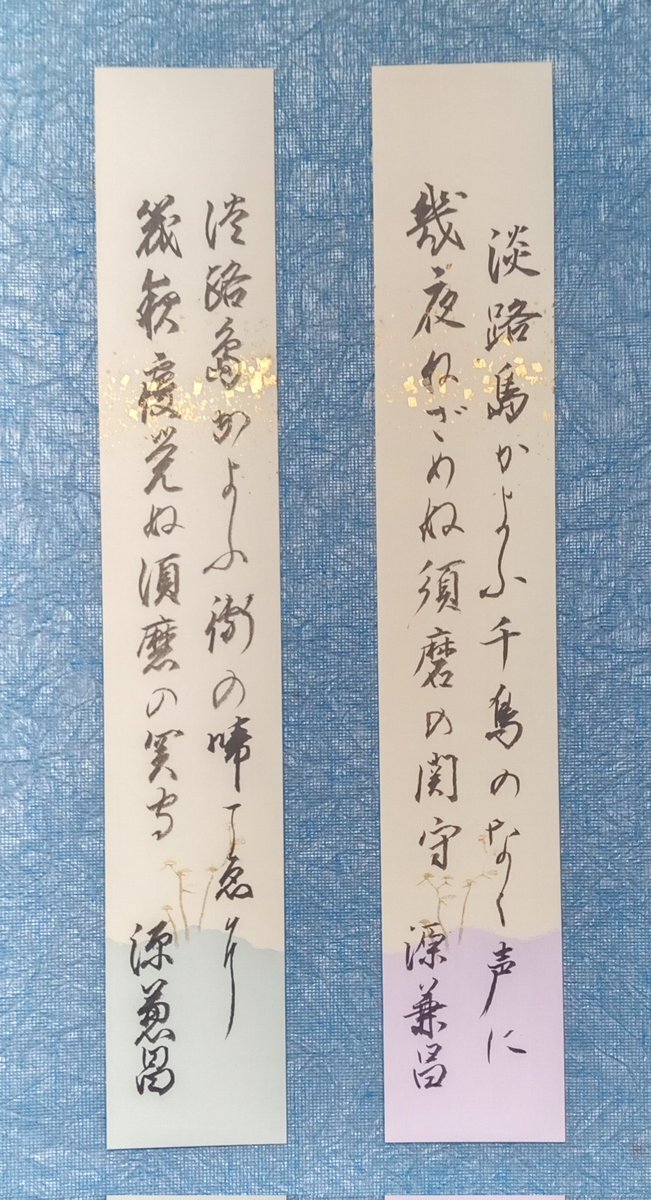 淡路島かよふ千鳥のなく声に
幾夜ねざめぬ須磨の関守
源兼昌
淡路島かよふの啼こゑ
覚ぬ須磨の関守
源兼昌